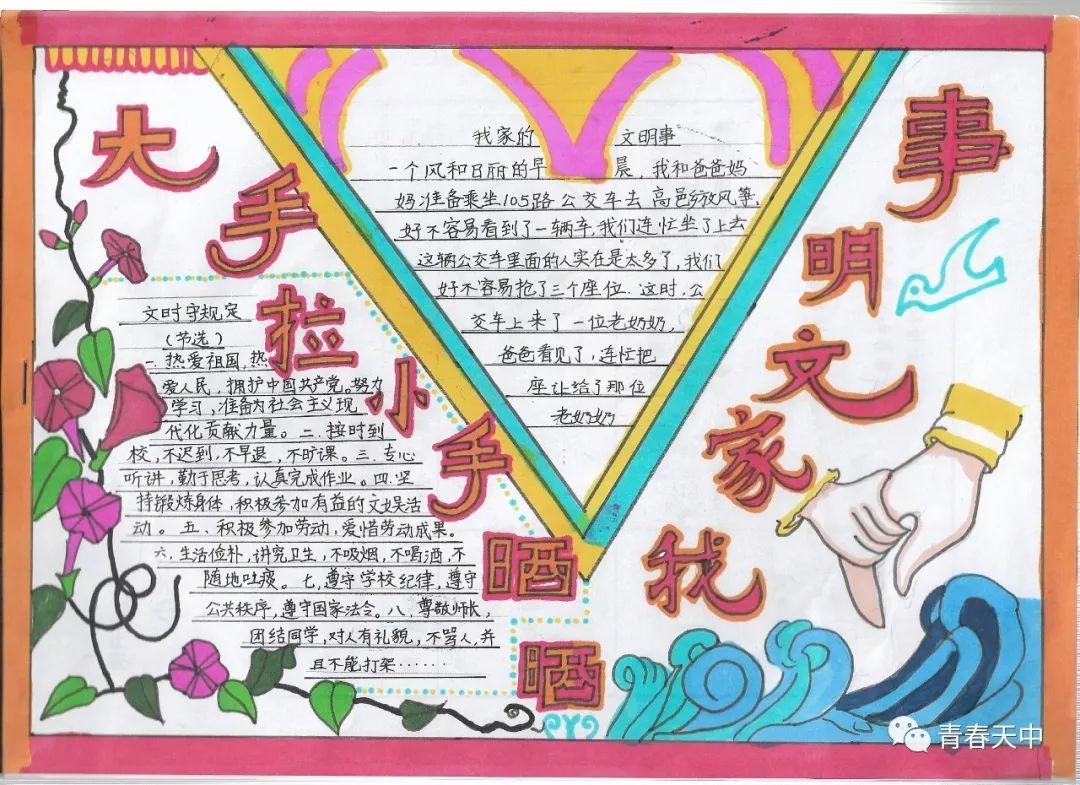 大手拉小手晒晒
我家文明事
我家的 文明事
一个风和日丽的早 晨，我和爸爸妈
妈准备乘坐105路公交车去高邑放风筝，
好不容易看到了一辆车，我们连忙坐了上去
这辆公交车里面的人实在是太多了，我们
好不容易抢了三个座位．这时，公
交车上来了一位老奶奶，
爸爸看见了，连忙把
座让给了那位
老奶奶
文时守规定
（节选）
一．热爱祖国，热
爱人民，拥护中国共产党。努力
学习，准备为社会主义现
代化贡献力量。二．按时到
校，不迟到，不早退，不旷课。三．专心
听讲，勤于思考，认真完成作业。四．坚
持锻炼身体，积极参加有益的文娱活
动。五．积极参加劳动，爱惜劳动成果。
六．生活俭补，讲究卫生，不吸烟，不喝酒，不
随地吐痰。七，遵守学校纪律，遵守
公共秩序，遵守国家法令。八．尊敬师长，
团结同学，对人有礼貌，不骂人，并
且不能打架……
青春天中